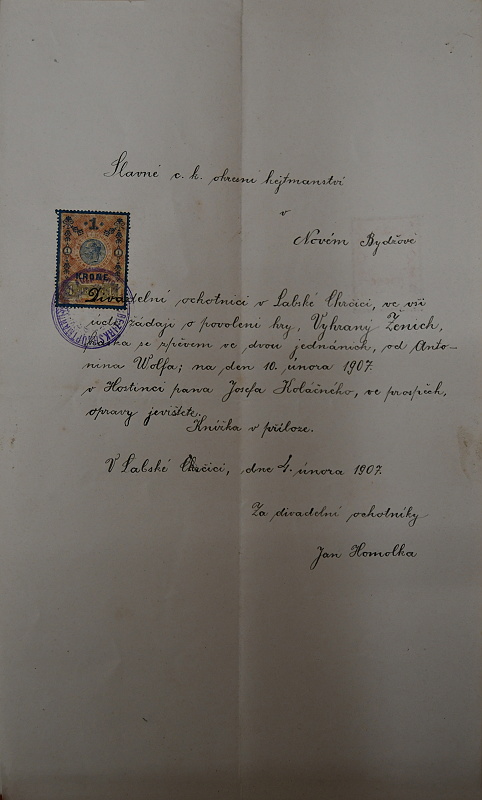 Slavné c. k. okresní hejtmanství
v
Novém Bydžově
1
1 1
KRONE
Divadelní ochotníci v Labské Chrčici, ve vší
úctě žádají o povolení hry, Vyhraný Ženich,
fraška se zpěvem ve dvou jednánách, od Anto-
nína Wolfa; na den 10. února 1907.
v Hostinci pana Josefa Koláčného, ve prospěch,
opravy jeviště.
Knížka v příloze.
V Labské Chrčici, dne 4. února 1907.
Za divadelní ochotníky
Jan Homolka